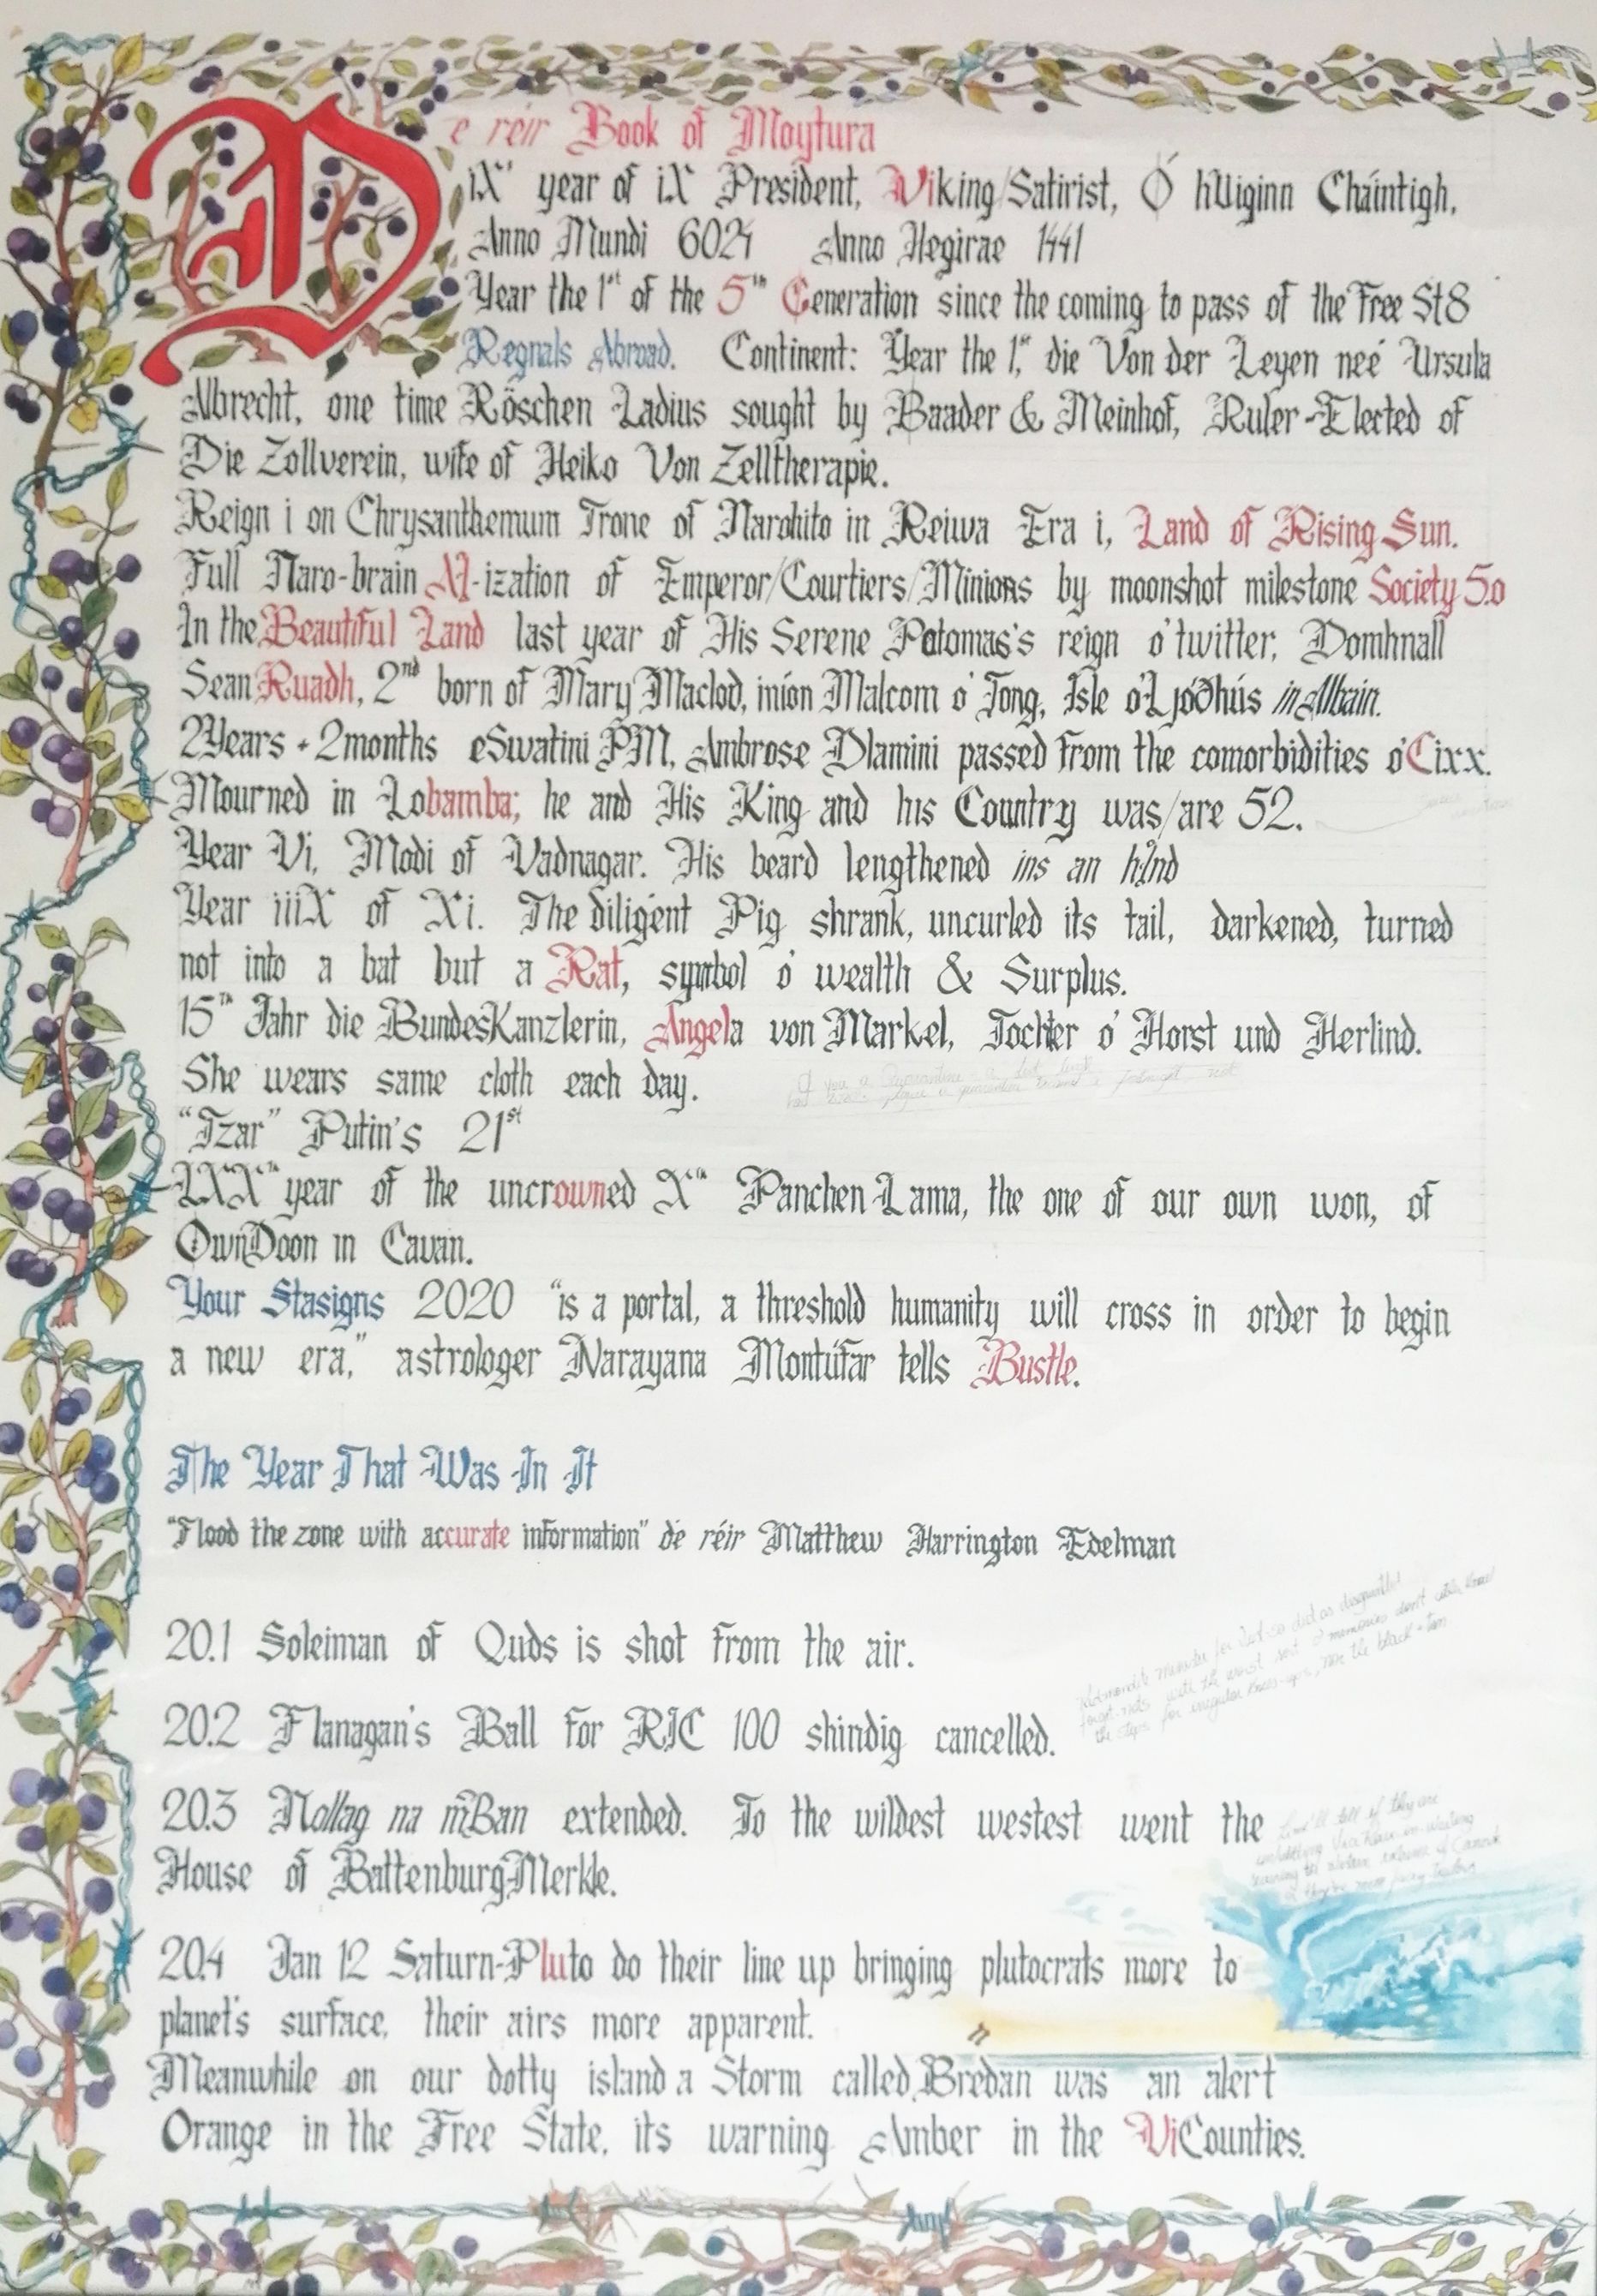 De réir Book of Moytura
iX' year of iX President, Viking/Satirist, Ó hUiginn Cháintigh,
Anno Mundi 6024 Anno Hegirae 1441
Year the 1st of the 5th Generation since the coming to pass of the Free St8
Regnals Abroad. Continent: Year the 1st, die Von der Leyen neé Ursula
Albrecht, one time Röschen Ladius sought by Baader & Meinhof, Ruler-Elected of
Die Zollverein, wife of Heiko Von Zelltherapie.
Reign i on Chrysanthemum Trone of Narohito in Reiwa Era i, Land of Rising Sun.
Full Naro-brain AI-ization of Emperor/Courtiers/Minions by moonshot milestone Society 5.0
In the Beautiful Land last year of His Serene Potomas's reign o' twitter, Domhnall
Sean Ruadh, 2nd born of Mary Maclod, iníon Malcom o' Tong, Isle o'Ljóðhús in Albain.
2Years + 2months eSwatini PM, Ambrose Dlamini passed from the comorbidities o'Cixx.
Mourned in Lobamba; he and His King and his Country was/are 52.
Year Vi, Modi of Vadnagar. His beard lengthened ins an hÍnd
Year iiiX of Xi. The diligent Pig shrank, uncurled its tail, darkened, turned
not into a bat but a Rat, symbol o' wealth & Surplus.
15th Jahr die BundesKanzlerin, Angela von Markel, Tochter o' Horst und Herlind.
She wears same cloth each day.
"Tzar" Putin's 21st
LXXth year of the uncrowned Xth Panchen Lama, the one of our own won, of
OwnDoon in Cavan.
Your Stasigns 2020 "is a portal, a threshold humanity will cross in order to begin
a new era," astrologer Narayana Montúfar tells Bustle.
The Year That Was In It
"Flood the zone with accurate information" de réir Matthew Harrington Edelman
20.1 Soleiman of Quds is shot from the air.
20.2 Flanagan's Ball for RIC 100 shindig cancelled.
20.3 Nollag na mBan extended. To the wildest westest went the
House of BattenburgMerkle.
20.4 Jan 12 Saturn-Pluto do their line up bringing plutocrats more to
planet's surface, their airs more apparent.
Meanwhile on our dotty island a Storm called Bredan was an alert
Orange in the Free State, its warning Amber in the ViCounties.